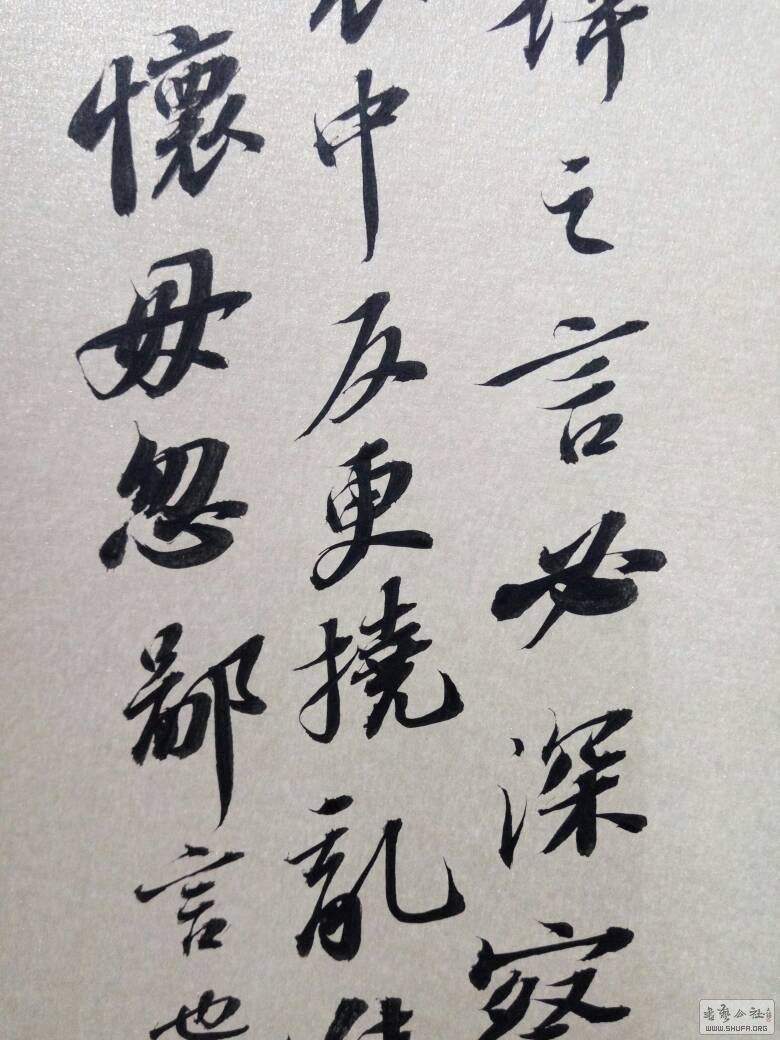 之言必深察
中反更撓亂
懷毋忽鄙言也
書藝公社
WWW.SHUFA.ORG